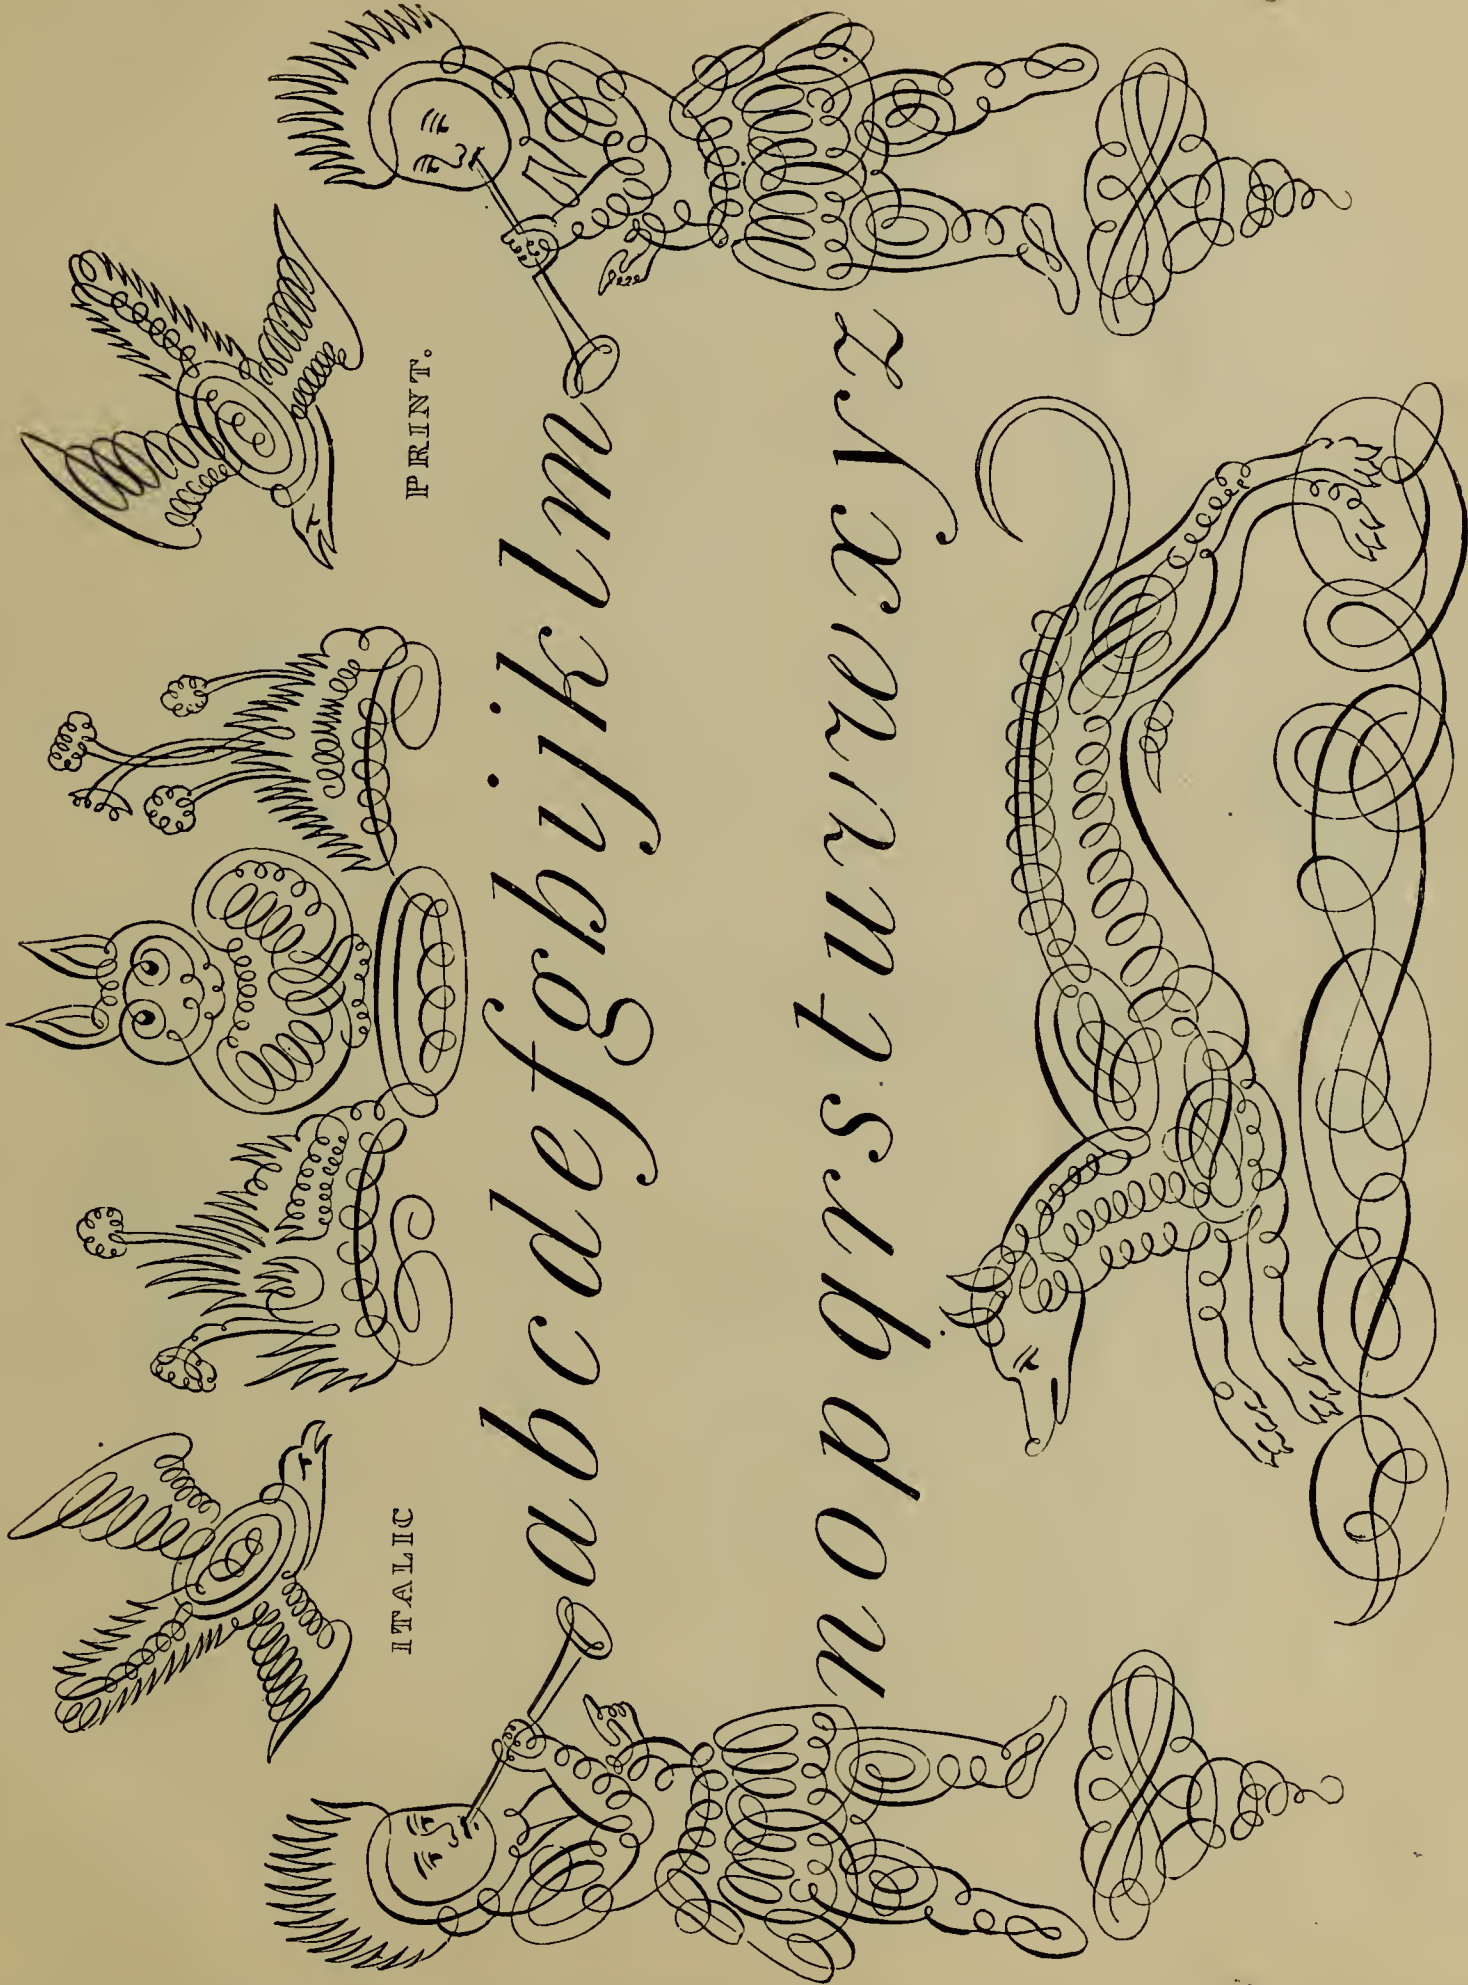 ITALIC PRINT.
a b c d e f g h i j k l m
n o p q r s t u v w x y z